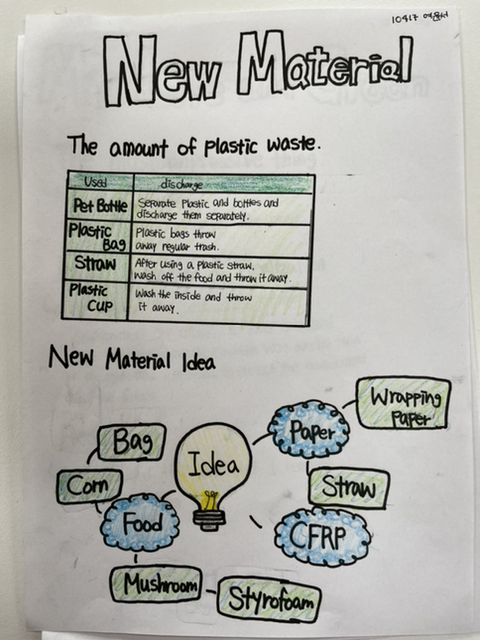 10417
New Material
The amount of plastic waste.
Used discharge
Pet Bottle Separate Plastic and bottles and
discharge them separately.
Plastic Plastic bags throw
Bag away regular trash.
Straw After using a plastic straw,
wash off the food and throw it away.
Plastic Wash the inside and throw
Cup it away.
New Material Idea
Wrapping
Paper
Paper
Bag
Idea
Corn
Straw
Food
CFRP
Mushroom
Styrofoam